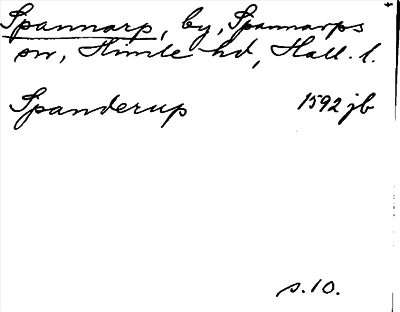 Spannarp, by, Spannarps
sn, Himle hd, Hall. l.
Spanderup 1592 jb
s. 10.